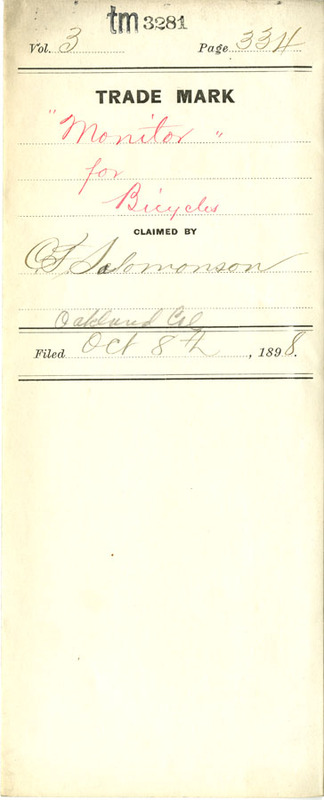 tm 3281
Vol. 3 Page 334
TRADE MARK
"Monitor"
for
Bicycles
CLAIMED BY
C. F. Salomonson
Oakland Cal
Filed Oct 8th, 1898.